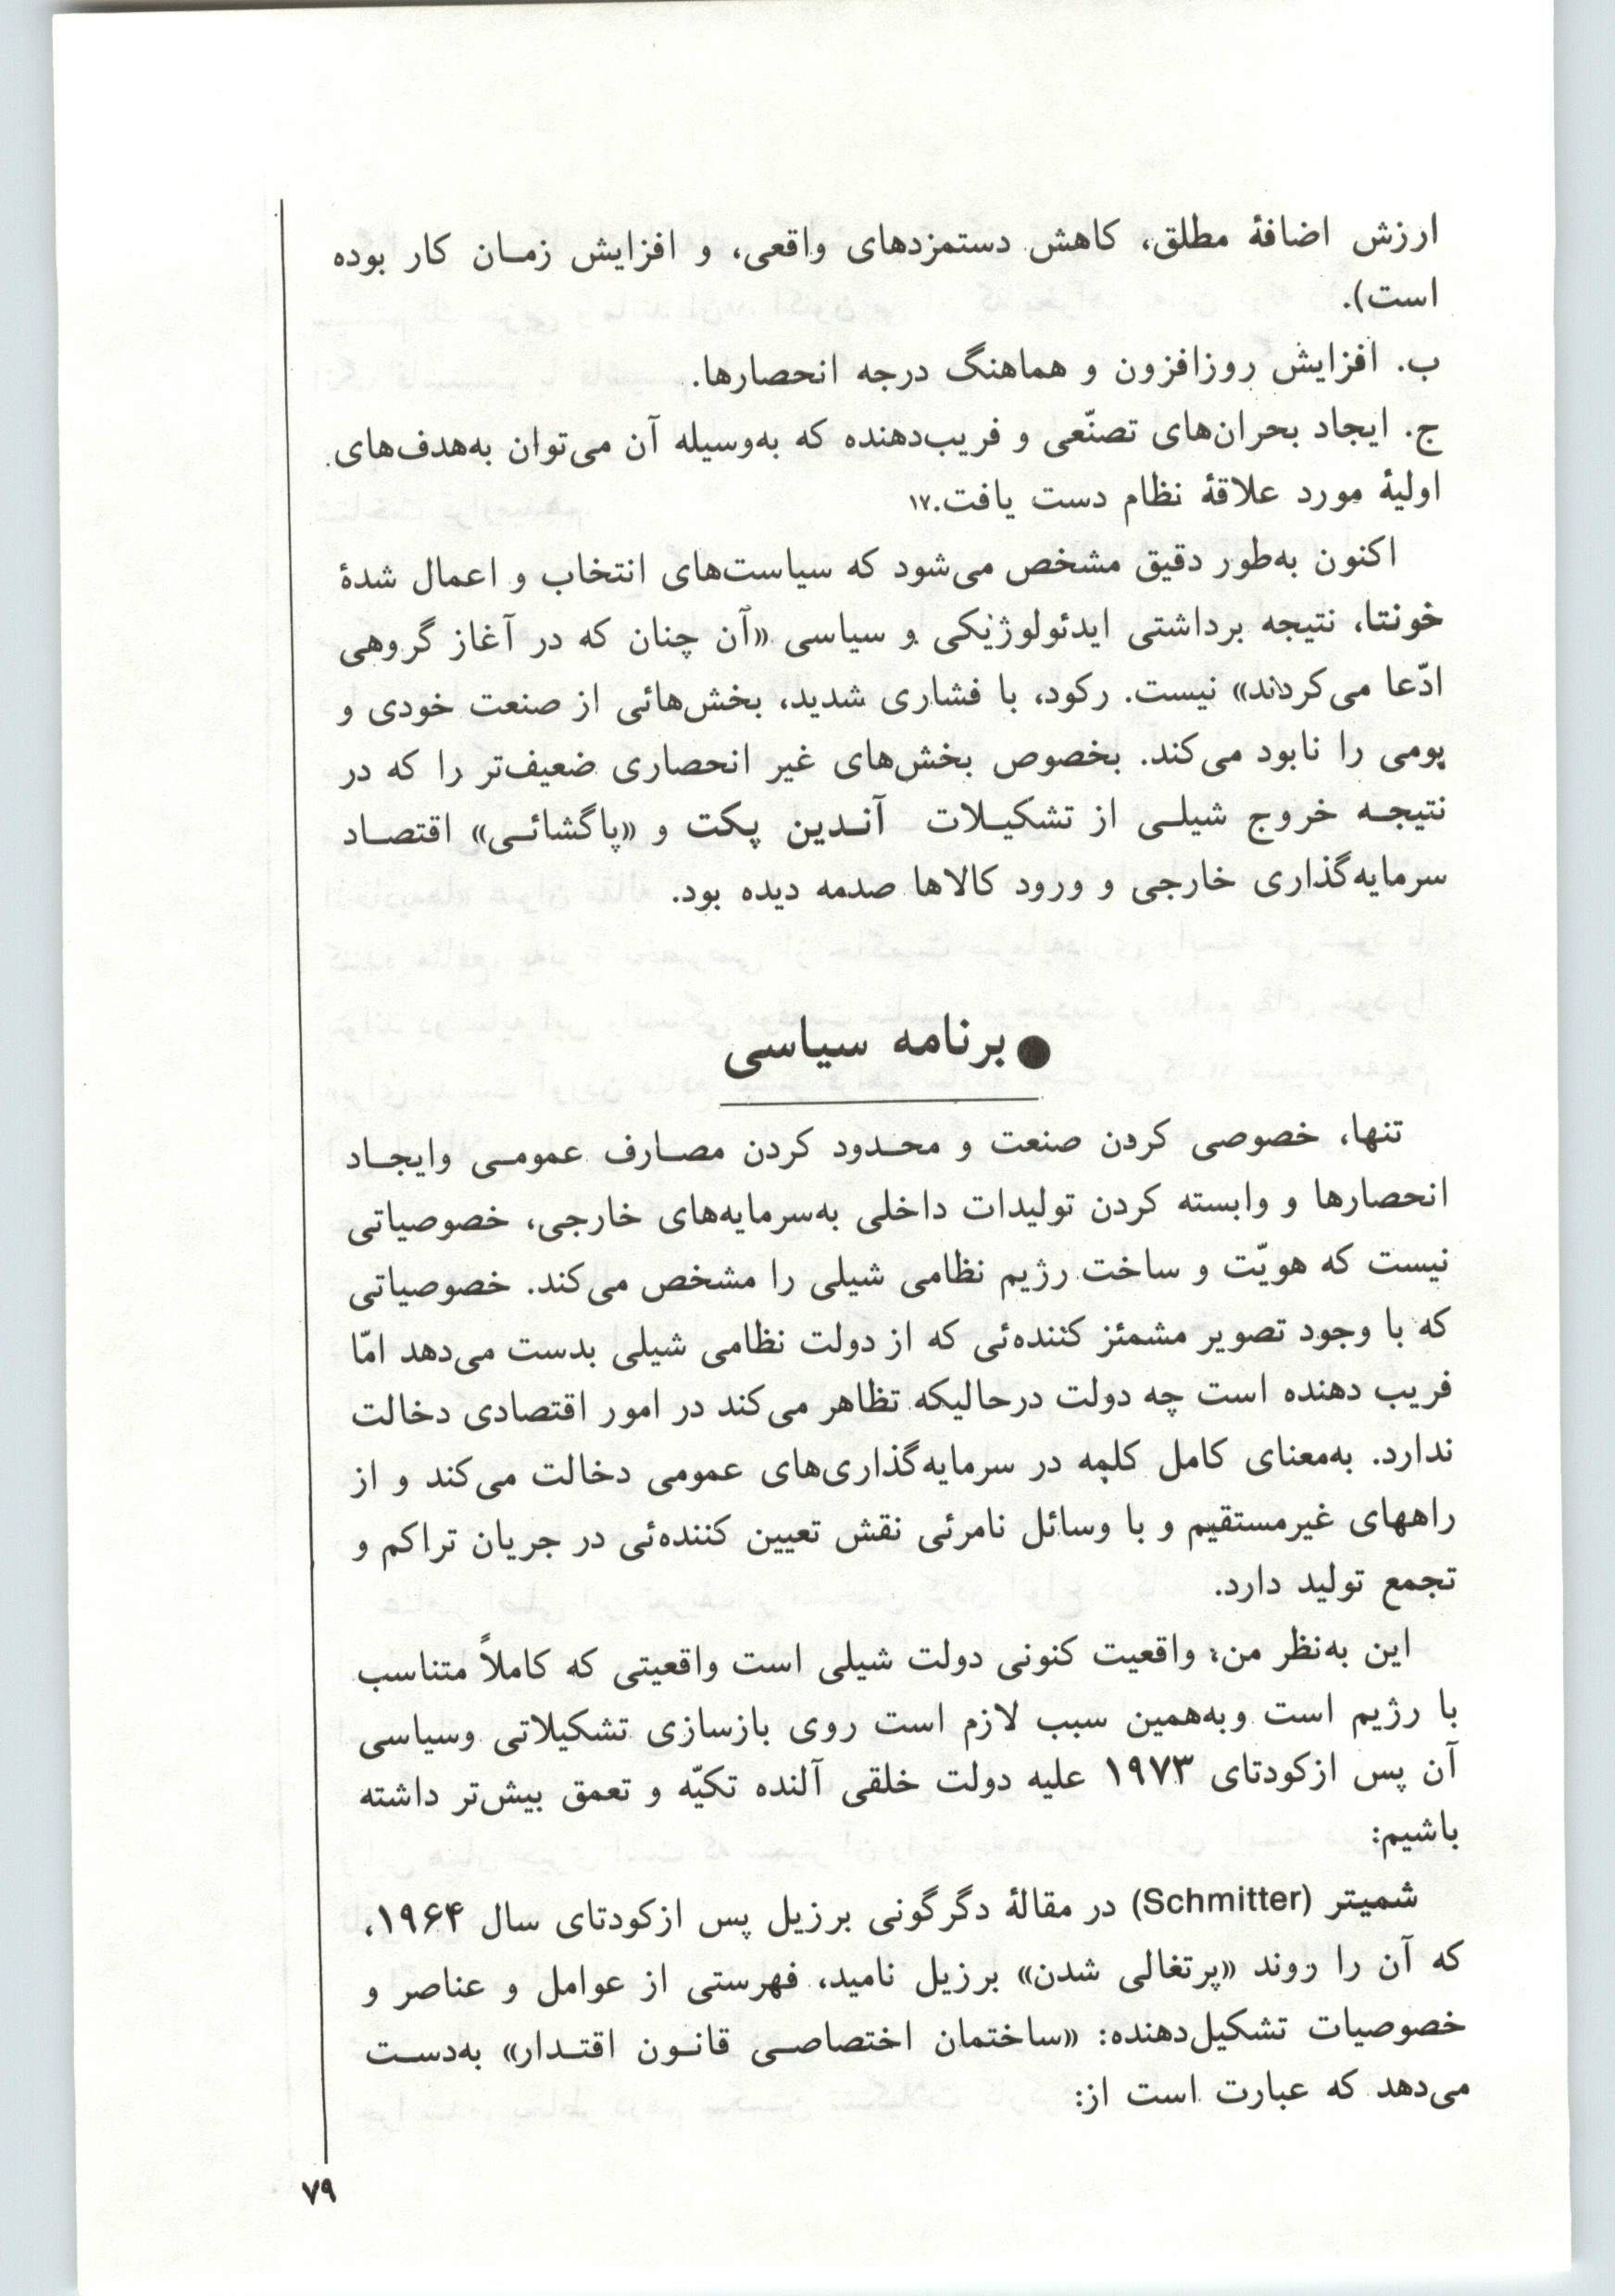 ارزش اضافهٔ مطلق، کاهش دستمزدهای واقعی، و افزایش زمان کار بوده
است).
ب. افزایش روزافزون و هماهنگ درجه انحصارها.
ج. ایجاد بحران‌های تصنّعی و فریب‌دهنده که به‌وسیله آن می‌توان به‌هدف‌های
اولیهٔ مورد علاقهٔ نظام دست یافت.۱۷
اکنون به‌طور دقیق مشخص می‌شود که سیاست‌های انتخاب و اعمال شدهٔ
خونتا، نتیجه برداشتی ایدئولوژیکی و سیاسی «آن چنان که در آغاز گروهی
ادّعا می‌کردند» نیست. رکود، با فشاری شدید، بخش‌هائی از صنعت خودی و
بومی را نابود می‌کند. بخصوص بخش‌های غیر انحصاری ضعیف‌تر را که در
نتیجه خروج شیلی از تشکیلات آندین پکت و «پاگشائی» اقتصاد
سرمایه‌گذاری خارجی و ورود کالاها صدمه دیده بود.
● برنامه سیاسی
تنها، خصوصی کردن صنعت و محدود کردن مصارف عمومی وایجاد
انحصارها و وابسته کردن تولیدات داخلی به‌سرمایه‌های خارجی، خصوصیاتی
نیست که هویّت و ساخت رژیم نظامی شیلی را مشخص می‌کند. خصوصیاتی
که با وجود تصویر مشمئز کننده‌ئی که از دولت نظامی شیلی بدست می‌دهد امّا
فریب دهنده است چه دولت درحالیکه تظاهر می‌کند در امور اقتصادی دخالت
ندارد. به‌معنای کامل کلمه در سرمایه‌گذاری‌های عمومی دخالت می‌کند و از
راههای غیرمستقیم و با وسائل نامرئی نقش تعیین کننده‌ئی در جریان تراکم و
تجمع تولید دارد.
این به‌نظر من، واقعیت کنونی دولت شیلی است واقعیتی که کاملاً متناسب
با رژیم است وبه‌همین سبب لازم است روی بازسازی تشکیلاتی وسیاسی
آن پس ازکودتای ۱۹۷۳ علیه دولت خلقی آلنده تکیّه و تعمق بیش‌تر داشته
باشیم:
شمیتر (Schmitter) در مقالهٔ دگرگونی برزیل پس ازکودتای سال ۱۹۶۴،
که آن را روند «پرتغالی شدن» برزیل نامید، فهرستی از عوامل و عناصر و
خصوصیات تشکیل‌دهنده: «ساختمان اختصاصی قانون اقتدار» به‌دست
می‌دهد که عبارت است از:
۷۹